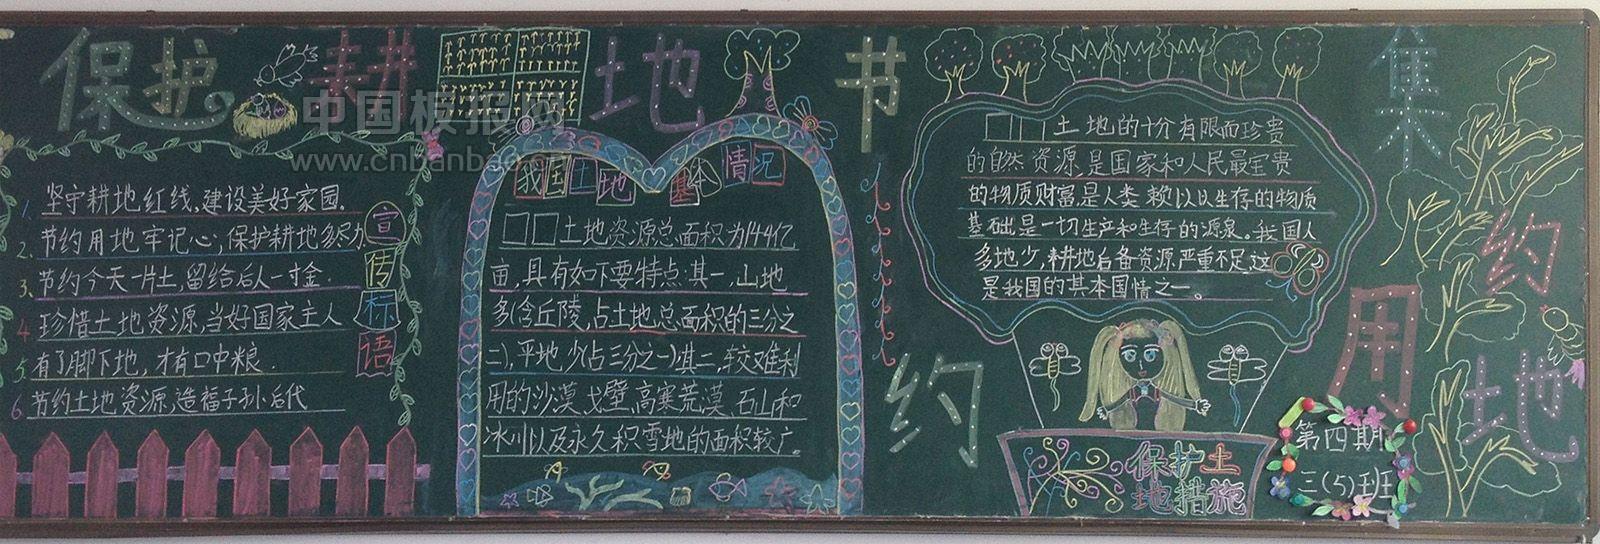 保护耕地 节约集约用地
中国板报网
www.cnbanbao.cn
宣传标语
1. 坚守耕地红线,建设美好家园.
2. 节约用地牢记心,保护耕地多尽力
3. 节约今天一片土,留给后人一寸金.
4. 珍惜土地资源,当好国家主人
5. 有了脚下地,才有口中粮.
6. 节约土地资源,造福子孙后代
我国土地基本情况
土地资源总面积为144亿
亩,具有如下要特点:其一,山地
多(含丘陵,占土地总面积的三分之
二),平地少(占三分之一)其二,较难利
用的沙漠、戈壁,高寒荒漠、石山和
冰川以及永久积雪地的面积较广。
土地的十分有限而珍贵
的自然资源,是国家和人民最宝贵
的物质财富,是人类赖以以生存的物质
基础是一切生产和生存的源泉。我国人
多地少,耕地后备资源严重不足,这
是我国的其本国情之一。
保护土
地措施
第四期
三(5)班